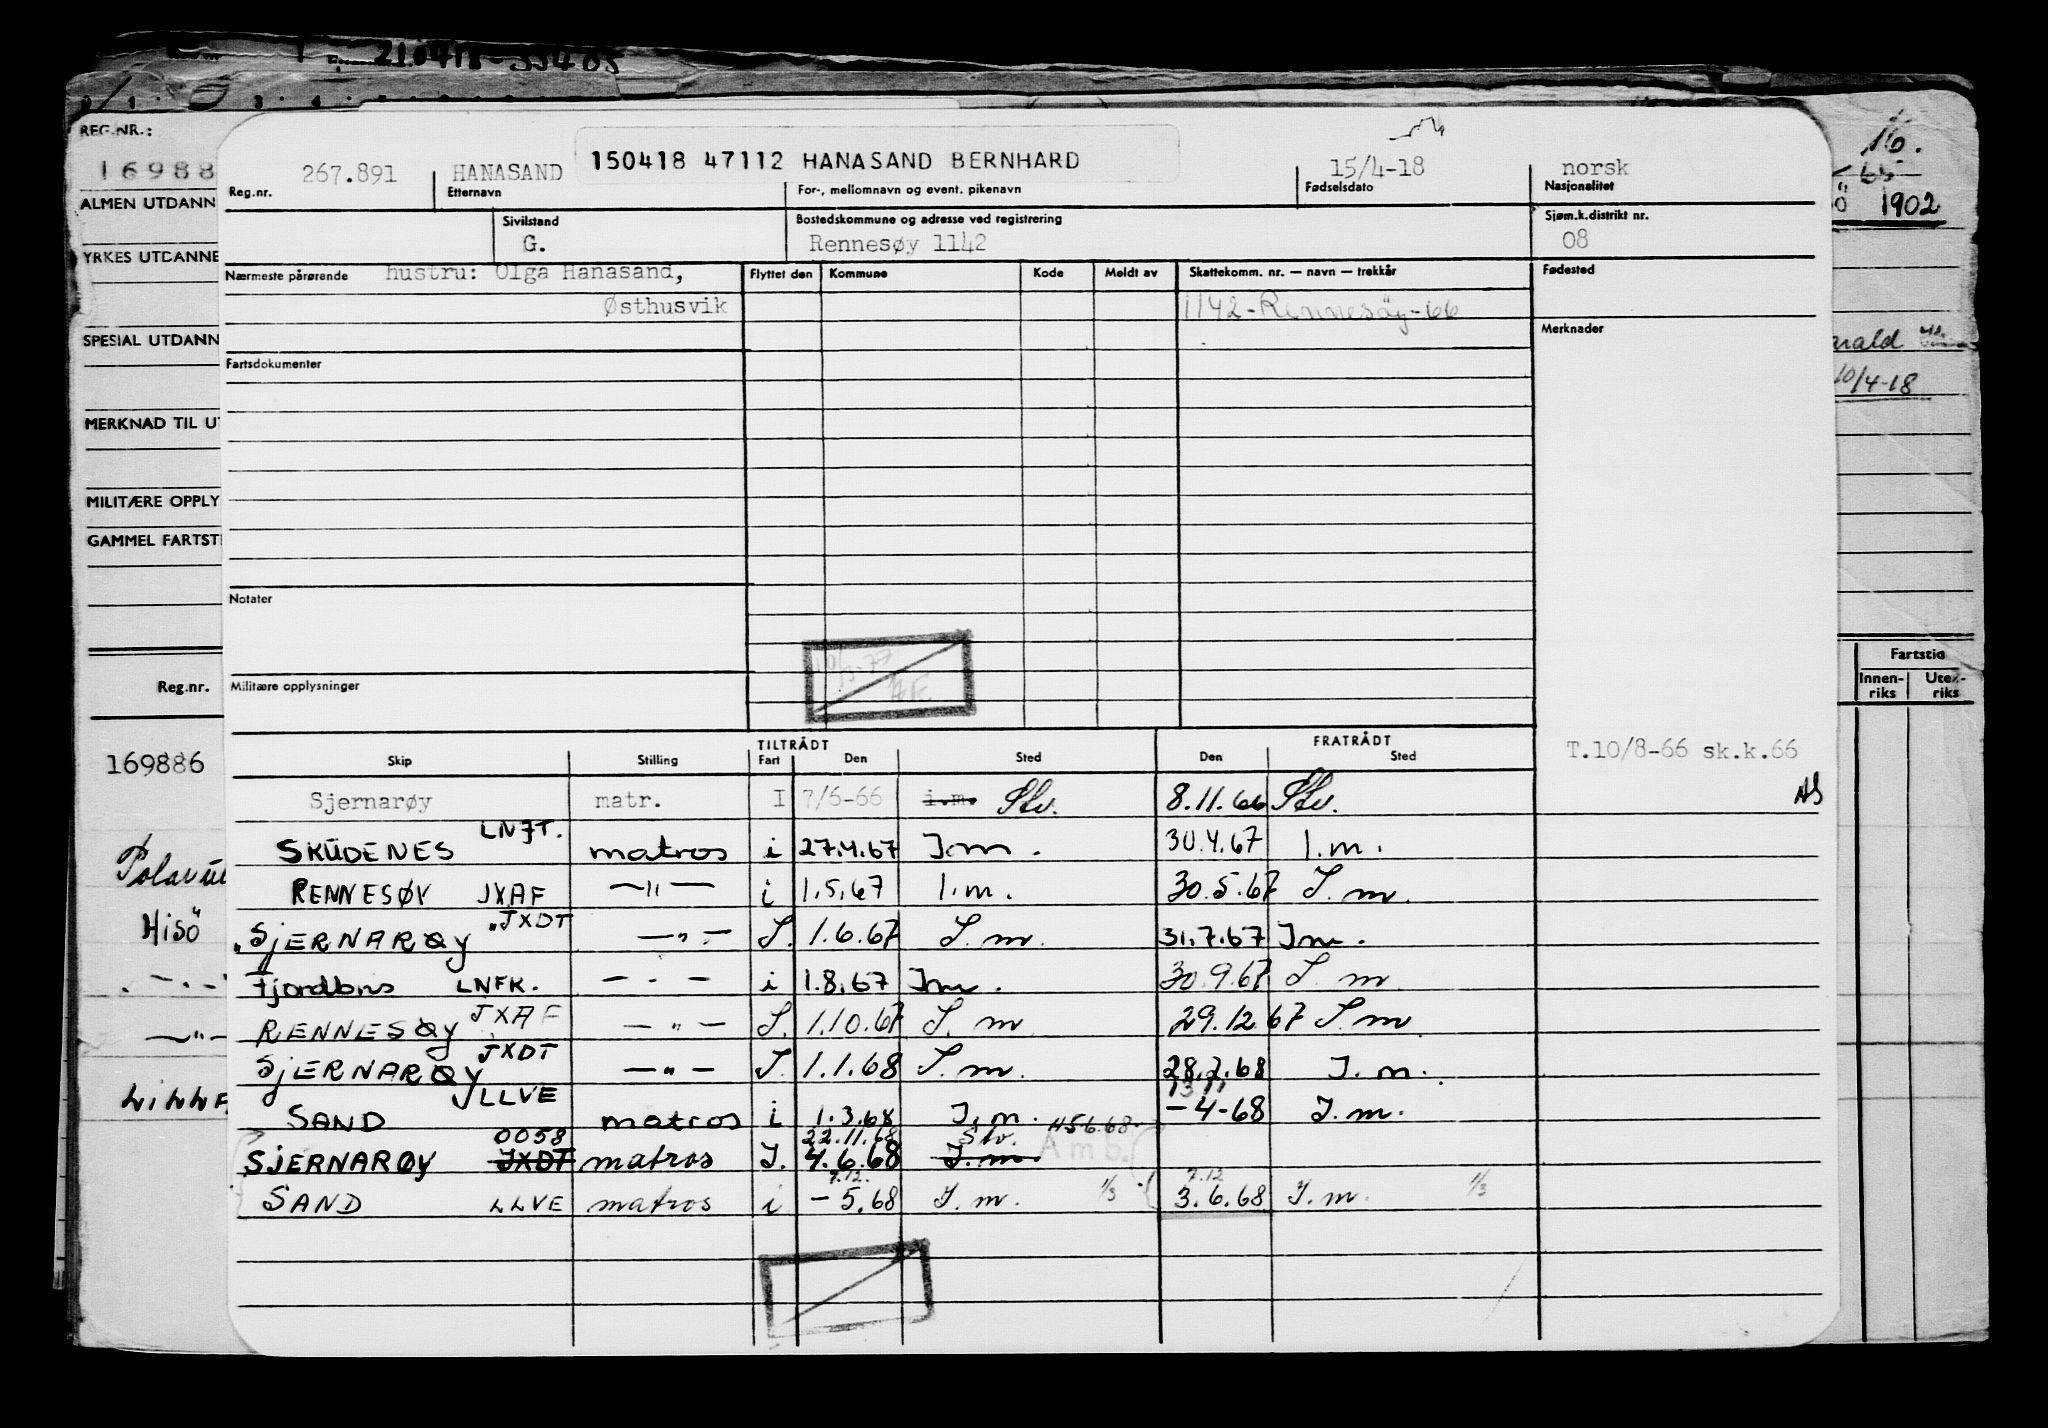 210418-
REG.NR.:
16988
ALMEN UTDANN
YRKES UTDANNE
SPESIAL UTDANN
MERKNAD TIL UT
MILITÆRE OPPLY
GAMMEL FARTSTI
Reg.nr.
169886
Hisö
16.
1902
arald
10/4-18
Fartstid
Innen-riks Uten-riks
267.891 HANASAND 150418 47112 HANASAND BERNHARD 15/4-18 norsk
Reg.nr. Etternavn For-, mellomnavn og event. pikenavn Fødselsdato Nasjonalitet
Sivilstand Bostedskommune og adresse ved registrering Sjøm.k.distrikt nr.
G. Rennesøy 1142 08
Nærmeste pårørende hustru: Olga Hanasand, Flyttet den Kommune Kode Meldt av Skattekomm. nr. — navn — trekkår Fødested
Østhusvik 1142-Rennesöy-66
Merknader
Fartsdokumenter
Notater
Militære opplysninger
TILTRÅDT FRATRÅDT
Skip Stilling Fart Den Sted Den Sted
T.10/8-66 sk.k.66
Sjernarøy matr. I 7/6-66 i.m. Stv. 8.11.66 Stv. AS
SKUDENES LNJT. matros i 27.4.67 I.m. 30.4.67 I.m.
RENNESØY JXAF —"— i 1.5.67 I.m. 30.5.67 I.m.
"SJERNARØY "JXDT —"— I. 1.6.67 I.m. 31.7.67 Im.
Fjordbris LNFK. —"— i 1.8.67 Im. 30.9.67 I.m
RENNESØY JXAF —"— I. 1.10.67 I.m 29.12.67 I.m
SJERNARØY JXDT —"— I. 1.1.68 I.m. 28.2.68 I.m.
SAND LLVE matros i 1.3.68 I.m. -4-68 I.m.
0058 22.11.68 Stv. H56.68.
SJERNARØY JXDT matros I. 4.6.68 I.m. Amb.
7.12. 7.12
SAND LLVE matros i -5.68 I.m. 1/3 3.6.68 I.m. 1/3